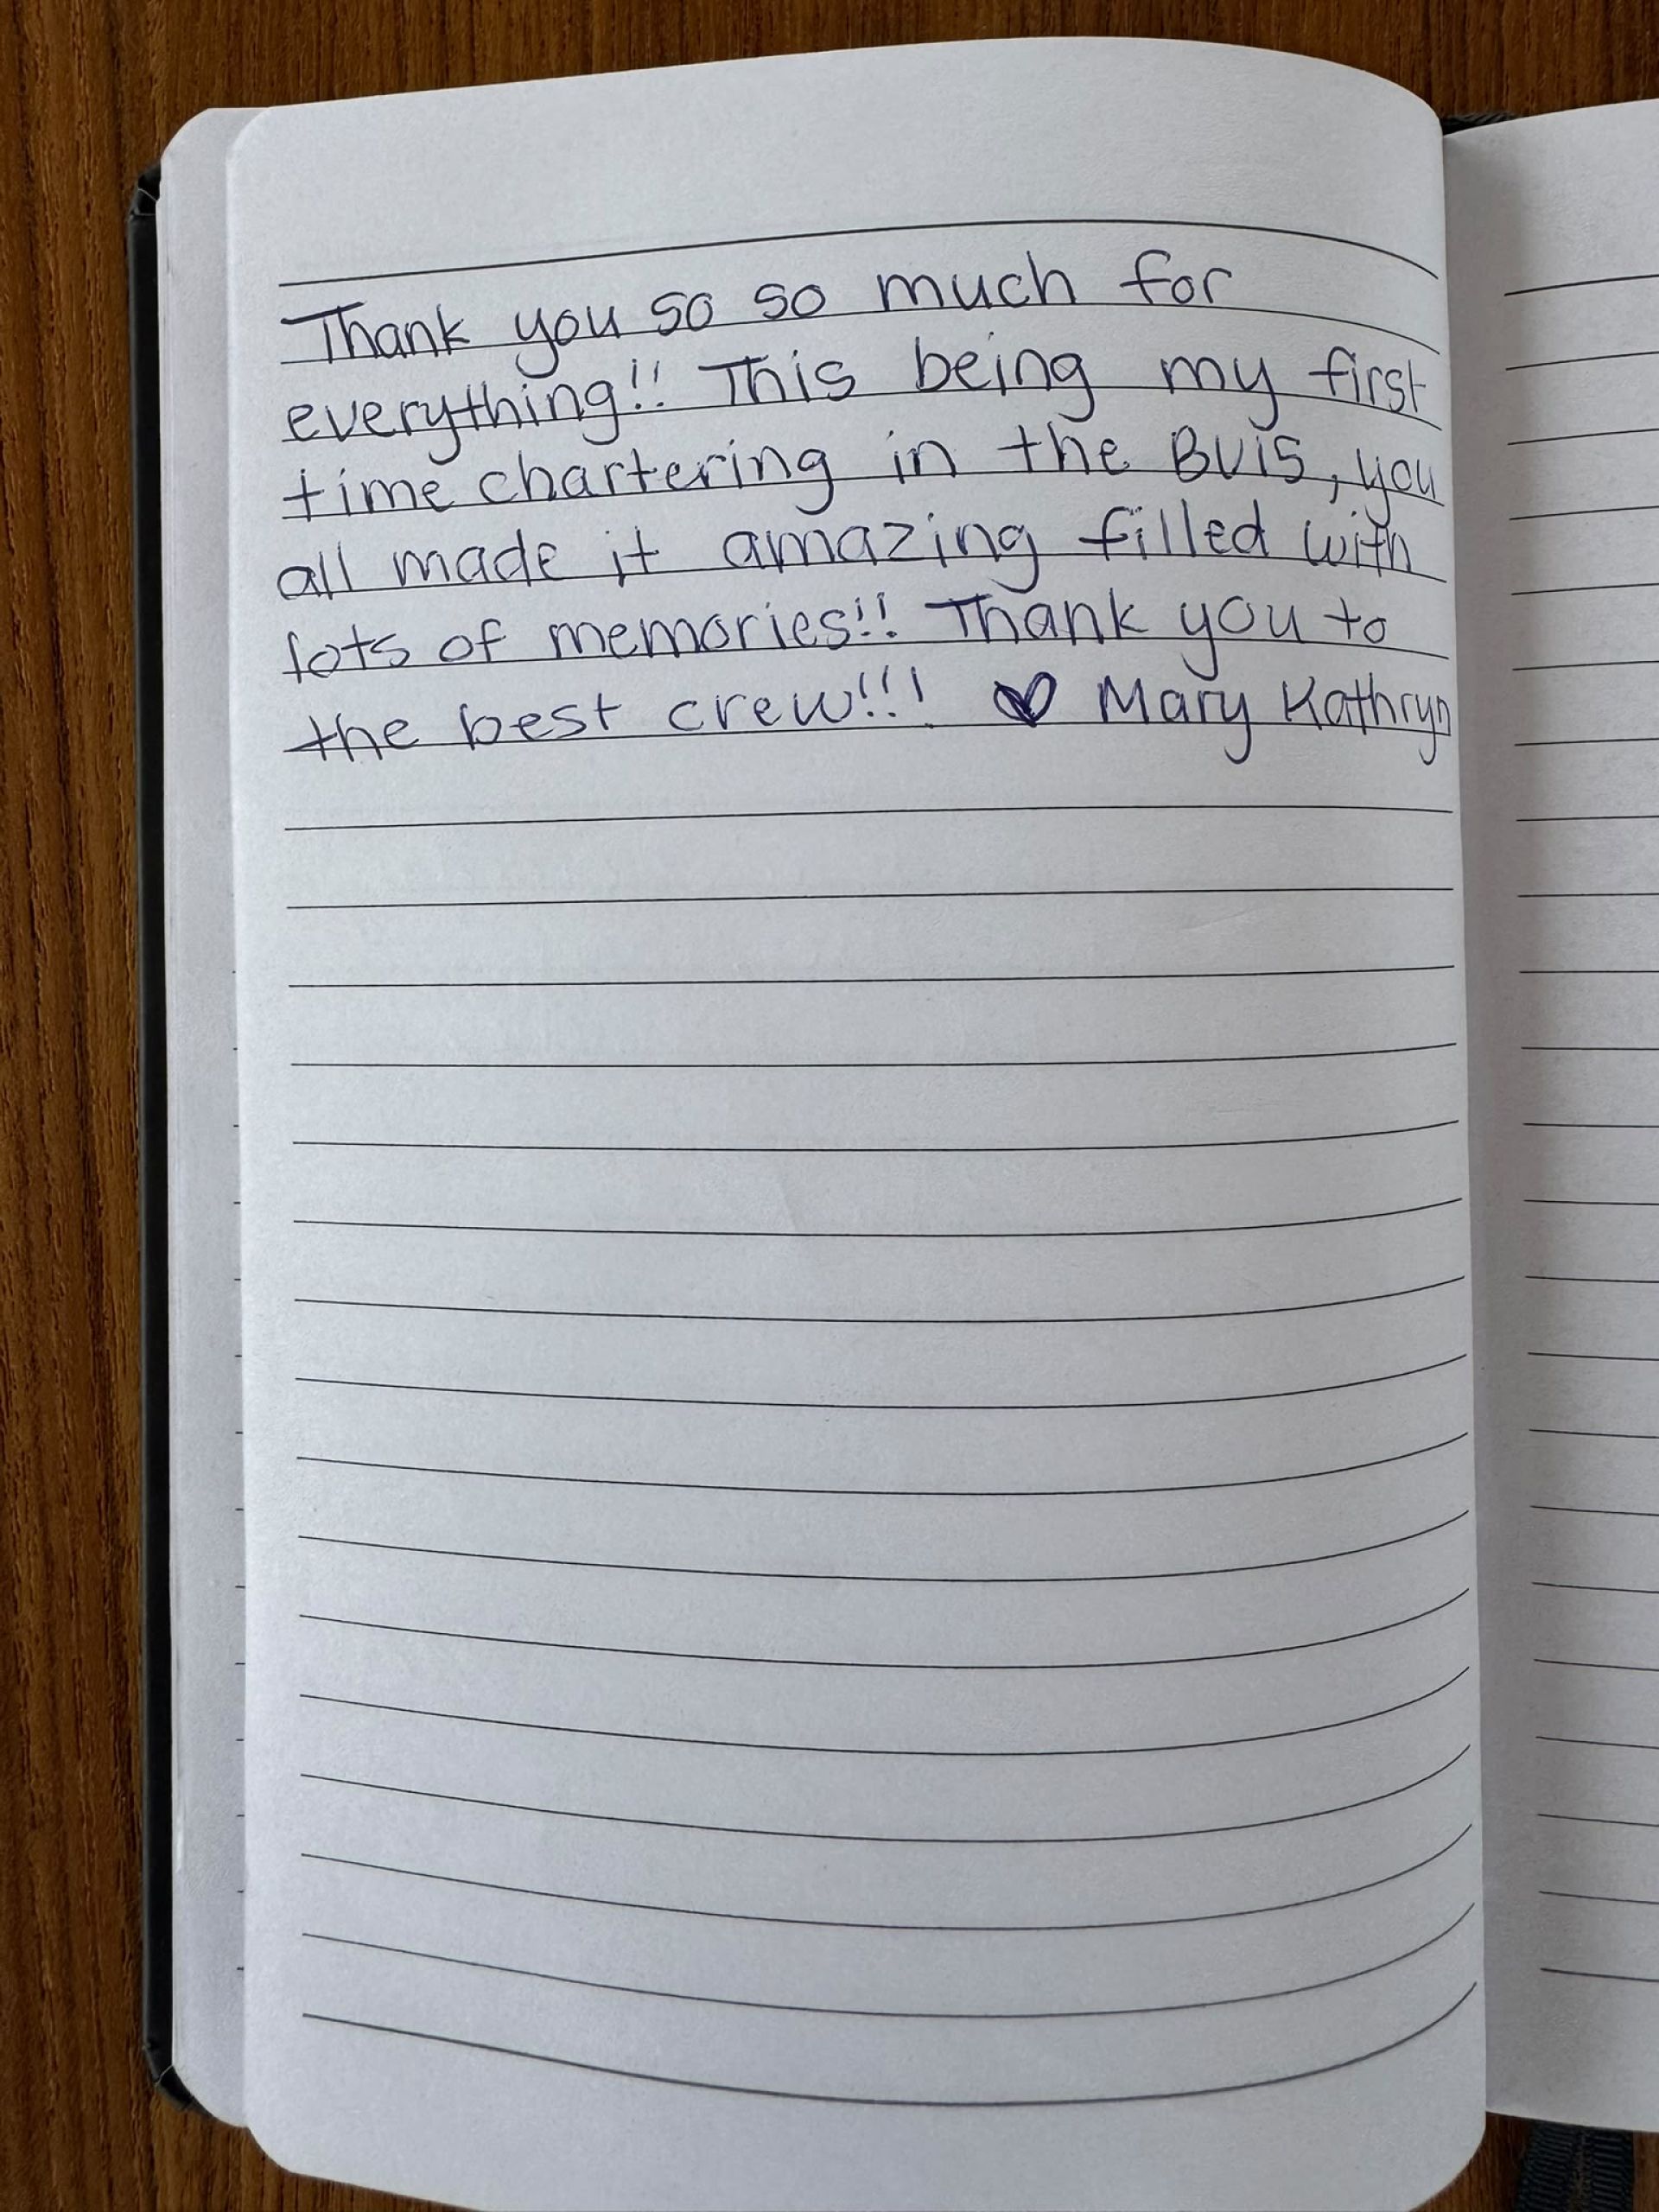 Thank you so so much for
everything!! This being my first
time chartering in the BVIS, you
all made it amazing filled with
lots of memories!! Thank you to
the best crew!!! ♥ Mary Kathryn